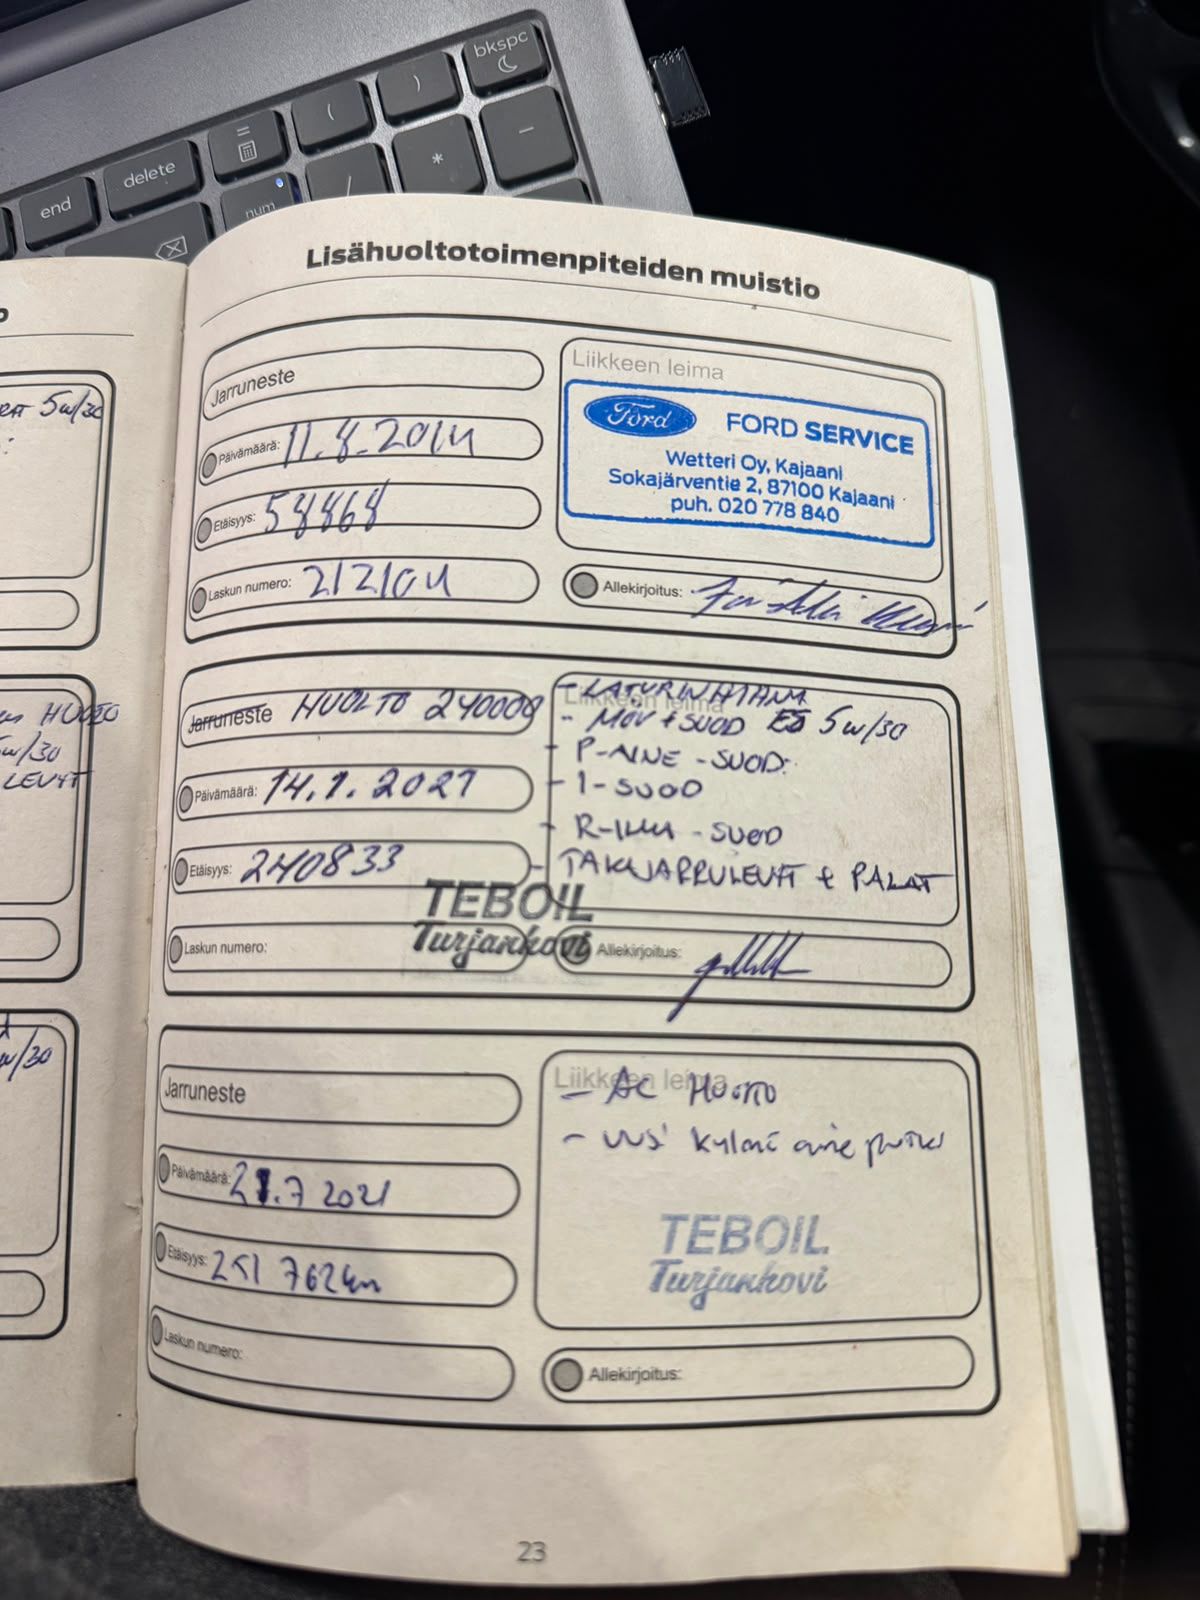 bkspc
delete
end
num
=
(
)
*
-
/
Lisähuoltotoimenpiteiden muistio
Jarruneste
Päivämäärä: 11.8.2014
Etäisyys: 58868
Laskun numero: 212104
Liikkeen leima
Ford
FORD SERVICE
Wetteri Oy, Kajaani
Sokajärventie 2, 87100 Kajaani
puh. 020 778 840
Allekirjoitus:
Jarruneste HUOLTO 240000
Päivämäärä: 14.1.2021
Etäisyys: 240833
Laskun numero:
Liikkeen leima
- LATURINHIHNA
- MÖY + SUOD 5w/30
- P-AINE -SUOD:
- I-SUOD
- R-ILMA -SUOD
- TAKAJARRULEVYT + PALAT
TEBOIL
Turjankovi
Allekirjoitus:
Jarruneste
Päivämäärä: 21.7 2021
Etäisyys: 251 762km
Laskun numero:
Liikkeen leima
- AC HUOLTO
- UUSI kylmä aine putki
TEBOIL
Turjankovi
Allekirjoitus:
23
5w/30
HUOLTO
5w/30
LEVYT
w/30